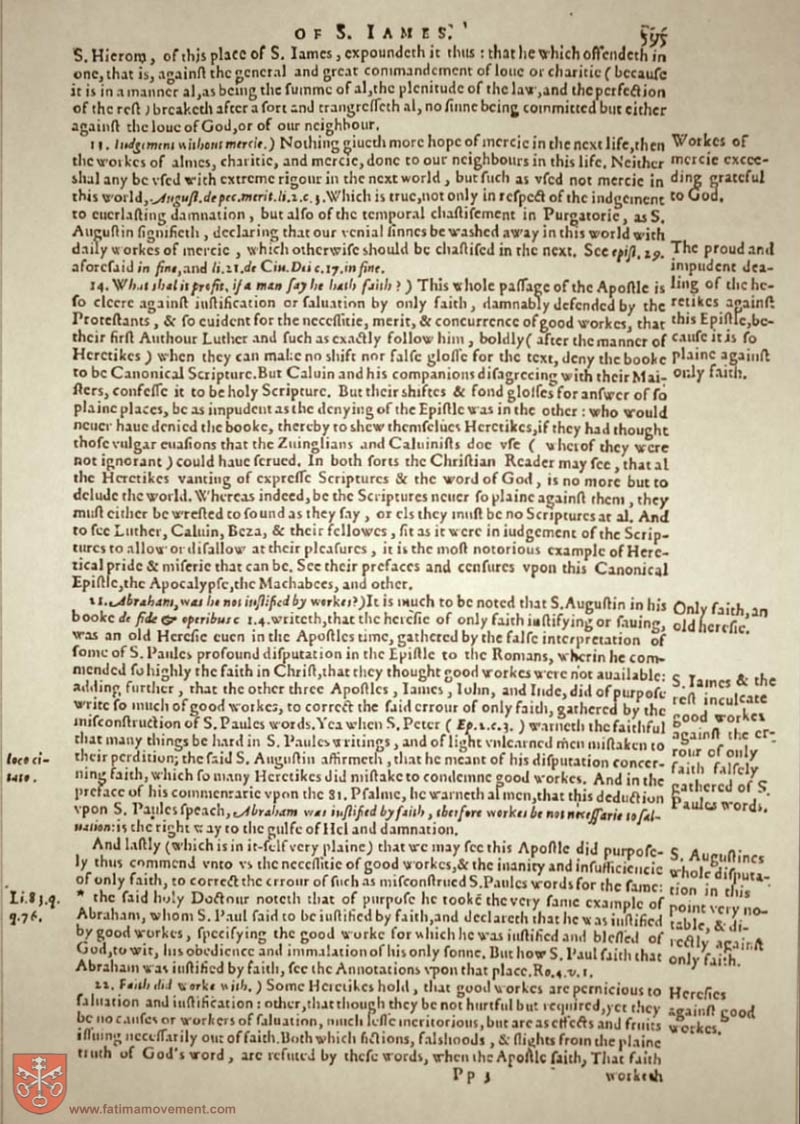 OF S. IAMES.
595
S. Hierom, of this place of S. Iames, expoundeth it thus : that he which offendeth in
one, that is, againſt the general and great commandement of loue or charitie ( becauſe
it is in a manner al, as being the ſumme of al, the plenitude of the law, and the perfection
of the reſt ) breaketh after a ſort and trangreſſeth al, no ſinne being committed but either
againſt the loue of God, or of our neighbour.
13. Iudgement without mercie. ) Nothing giueth more hope of mercie in the next life, then
the workes of almes, charitie, and mercie, done to our neighbours in this life. Neither
shal any be vſed with extreme rigour in the next world, but ſuch as vſed not mercie in
this world, Auguſt. de pec. merit. li. 2. c. 3. Which is true, not only in reſpect of the iudgement
to euerlaſting damnation, but alſo of the temporal chaſtiſement in Purgatorie, as S.
Auguſtin ſignifieth, declaring that our venial ſinnes be waſhed away in this world with
daily workes of mercie, which otherwiſe should be chaſtiſed in the next. See epiſt. 29.
aforeſaid in fine, and li. 21. de Ciu. Dei c. 17. in fine.
Workes of
mercie excee-
ding grateful
to God.
14. What shal it profit, if a man ſay he hath faith? ) This whole paſſage of the Apoſtle is
ſo cleere againſt iuſtification or ſaluation by only faith, damnably defended by the
Proteſtants, & ſo euident for the neceſſitie, merit, & concurrence of good workes, that
their firſt Authour Luther and ſuch as exactly follow him, boldly ( after the manner of
Heretikes ) when they can make no shift nor falſe gloſſe for the text, deny the booke
to be Canonical Scripture. But Caluin and his companions diſagreeing with their Mai-
ſters, confeſſe it to be holy Scripture. But their shiftes & fond gloſſes for anſwer of ſo
plaine places, be as impudent as the denying of the Epiſtle was in the other : who would
neuer haue denied the booke, thereby to shew themſelues Heretikes, if they had thought
thoſe vulgar euaſions that the Zuinglians and Caluiniſts doe vſe ( wherof they were
not ignorant ) could haue ſerued. In both ſorts the Chriſtian Reader may ſee, that al
the Heretikes vanting of expreſſe Scriptures & the word of God, is no more but to
delude the world. Whereas indeed, be the Scriptures neuer ſo plaine againſt them, they
muſt either be wreſted to ſound as they ſay, or els they muſt be no Scriptures at al. And
to ſee Luther, Caluin, Beza, & their fellowes, ſit as it were in iudgement of the Scrip-
tures to allow or diſallow at their pleaſures, it is the moſt notorious example of Here-
tical pride & miſerie that can be. See their prefaces and cenſures vpon this Canonical
Epiſtle, the Apocalypſe, the Machabees, and other.
The proud and
impudent dea-
ling of the he-
retikes againſt
this Epiſtle, be-
cauſe it is ſo
plaine againſt
only faith.
21. Abraham, was he not iuſtified by workes? ) It is much to be noted that S. Auguſtin in his
booke de fide & operibus c. 14. writeth, that the hereſie of only faith iuſtifying or ſauing,
was an old Hereſie euen in the Apoſtles time, gathered by the falſe interpretation of
ſome of S. Paules profound diſputation in the Epiſtle to the Romans, wherin he com-
mended ſo highly the faith in Chriſt, that they thought good workes were not auailable:
adding further, that the other three Apoſtles, Iames, Iohn, and Iude, did of purpoſe
write ſo much of good workes, to correct the ſaid errour of only faith, gathered by the
miſconſtruction of S. Paules words. Yea when S. Peter ( Ep. 2. c. 3. ) warneth the faithful
that many things be hard in S. Paules writings, and of light vnlearned men miſtaken to
their perdition; the ſaid S. Auguſtin affirmeth, that he meant of his diſputation concer-
ning faith, which ſo many Heretikes did miſtake to condemne good workes. And in the
preface of his commentarie vpon the 31. Pſalme, he warneth al men, that this deduction
vpon S. Paules ſpeach, Abraham was iuſtified by faith, therfore workes be not neceſſarie to ſal-
uation: is the right way to the gulfe of Hel and damnation.
Only faith, an
old hereſie.
S. Iames & the
reſt inculcate
good workes
againſt the er-
rour of only
faith falſely
gathered of S.
Paules words.
loco ci-
tato.
And laſtly ( which is in it-ſelf very plaine ) that we may ſee this Apoſtle did purpoſe-
ly thus commend vnto vs the neceſſitie of good workes, & the inanity and inſufficiencie
of only faith, to correct the errour of ſuch as miſconſtrued S. Paules words for the ſame:
* the ſaid holy Doctour noteth that of purpoſe he tooke the very ſame example of
Abraham, whom S. Paul ſaid to be iuſtified by faith, and declareth that he was iuſtified
by good workes, ſpecifying the good worke for which he was iuſtified and bleſſed of
God, to wit, his obedience and immalation of his only ſonne. But how S. Paul ſaith that
Abraham was iuſtified by faith, ſee the Annotations vpon that place. Ro. 4. v. 1.
S. Auguſtines
whole diſputa-
tion in this
point very no-
table, & di-
rectly againſt
only faith.
Li. 83. q.
q. 76.
22. Faith did worke with. ) Some Heretikes hold, that good workes are pernicious to
ſaluation and iuſtification : other, that though they be not hurtful but required, yet they
be no cauſes or workers of ſaluation, much leſſe meritorious, but are as effects and fruits
iſſuing neceſſarily out of faith. Both which fictions, falshoods, & flights from the plaine
truth of God's word, are refuted by theſe words, when the Apoſtle ſaith, That faith
Hereſies
againſt good
workes.
Pp 3
worketh
www.fatimamovement.com